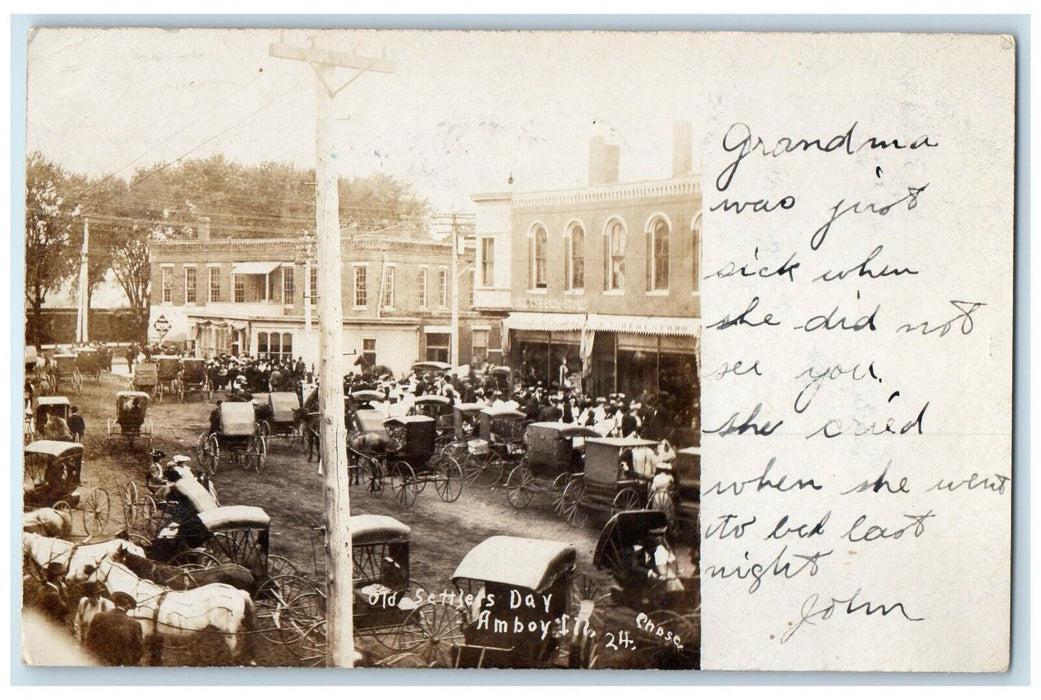 Grandma
was just
sick when
she did not
see you.
she cried
when she went
to bed last
night
John
Old Settlers Day
Amboy Ill.
24.
Chase.